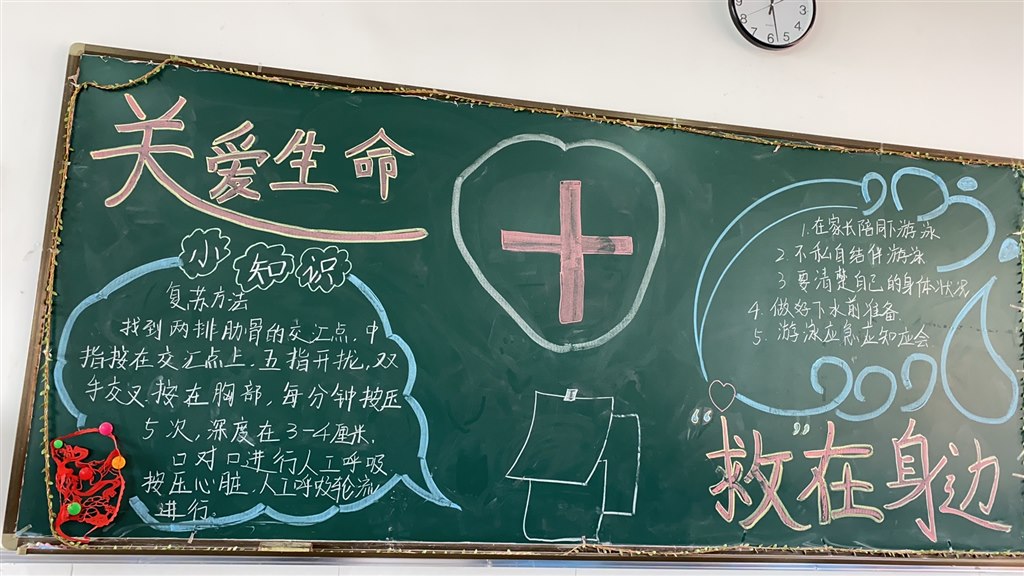 关爱生命
小知识
复苏方法
找到两排肋骨的交汇点,中
指按在交汇点上,五指开扰,双
手交叉按在胸部,每分钟按压
5次,深度在3-4厘米.
口对口进行人工呼吸
按压心脏,人工呼吸轮流
进行.
1.在家长陪同下游泳
2.不私自结伴游泳
3 要清楚自己的身体状况
4.做好下水前准备
5.游泳应急应知应会
“救”在身边
3
4
5
6
7
8
9